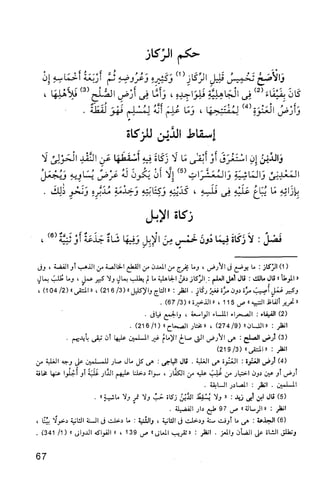 حكم الركاز
وَالْأَصَحُّ تَخْمِيسُ قَلِيلِ الرِّكَازِ (1) وَكَثِيرِهِ وَعُرُوضِهِ ثُمَّ أَرْبَعَةُ أَخْمَاسِهِ إِنْ
كَانَ بِفَيْفَاءَ (2) فِى الْجَاهِلِيَّةِ فَلِوَاجِدِهِ ، وَأَمَّا فِى أَرْضِ الصُّلْحِ (3) فَلِأَهْلِهَا ،
وَأَرْضِ الْعَنْوَةِ (4) لِمُفْتَتِحِهَا ، وَمَا عُلِمَ أَنَّهُ لِمُسْلِمٍ فَهْوَ لُقَطَةٌ .
إسقاط الدَّين للزكاة
وَالدَّيْنُ إِنِ اسْتَغْرَقَ أَوْ أَبْقَى مَا لَا زَكَاةَ فِيهِ أَسْقَطَهَا عَنِ النَّقْدِ الْحَوْلِىِّ لَا
الْمَعْدِنِىِّ وَالْمَاشِيَةِ وَالْمُعَشَّرَاتِ (5) إِلَّا أَنْ يَكُونَ لَهُ عَرْضٌ يُسَاوِيهِ وَيُجْعَلُ
بِإِزَائِهِ مَا يُبَاعُ عَلَيْهِ فِى فَلَسِهِ ، كَدَيْنِهِ وَكِتَابَتِهِ وَخِدْمَةِ مُدَبَّرِهِ وَنَحْوِ ذَلِكَ .
زكاة الإبل
فَصْلٌ : لَا زَكَاةَ فِيمَا دُونَ خَمْسٍ مِنَ الْإِبِلِ وَفِيهَا شَاةٌ جَذَعَةٌ أَوْ ثَنِيَّةٌ (6) ،
(1) الركاز : ما يوضع فى الأرض ، وما يخرج من المعدن من القطع الخالصة من الذهب أو الفضة ، وفى
« الموطأ » قال مالك : قال أهل العلم : الركاز دفن الجاهلية ما لم يطلب بمال ولا كبير عمل ، وما طُلب بمال
وكبير عمل أصيب مرّة دون مرّة فغير ركاز . انظر : « التاج والإكليل » (3/ 216) ، « المنتقى » (2/ 104) ،
« تحرير ألفاظ التنبيه » ص 115 ، « الذخيرة » (3/ 67) .
(2) الفيفاء : الصحراء الملساء الواسعة ، والجمع فيافى .
انظر : « اللسان » (9/ 274) ، « مختار الصحاح » (1/ 216) .
(3) أرض الصلح : هى الأرض التى صالح الإمامُ غير المسلمين عليها أن تبقى بأيديهم .
انظر : « المنتقى » (3/ 219)
(4) أرض العنوة : العَنْوة هى الغلبة . قال الباجى : هى كل مال صار للمسلمين على وجه الغلبة من
أرض أو عين دون اختيار من غُلب عليه من الكفّار ، سواء دخلنا عليهم الدار غلبةً أو أُجلوا عنها مخافة
المسلمين . انظر : المصادر السابقة .
(5) قال ابن أبى زيد : « ولا يُسْقِطُ الدَّيْنُ زكاة حَبٍّ ولا تمر ولا ماشية » .
انظر : « الرسالة » ص 97 طبع دار الفضيلة .
(6) الجذعة : هى ما أوفت سنة ودخلت فى الثانية ، والثنية : ما دخلت فى السنة الثانية دخولًا بيّنًا ،
وتطلق الشاة على الضأن والمعز . انظر : « تقريب المعانى » ص 139 ، « الفواكه الدوانى » (1/ 341) .
67